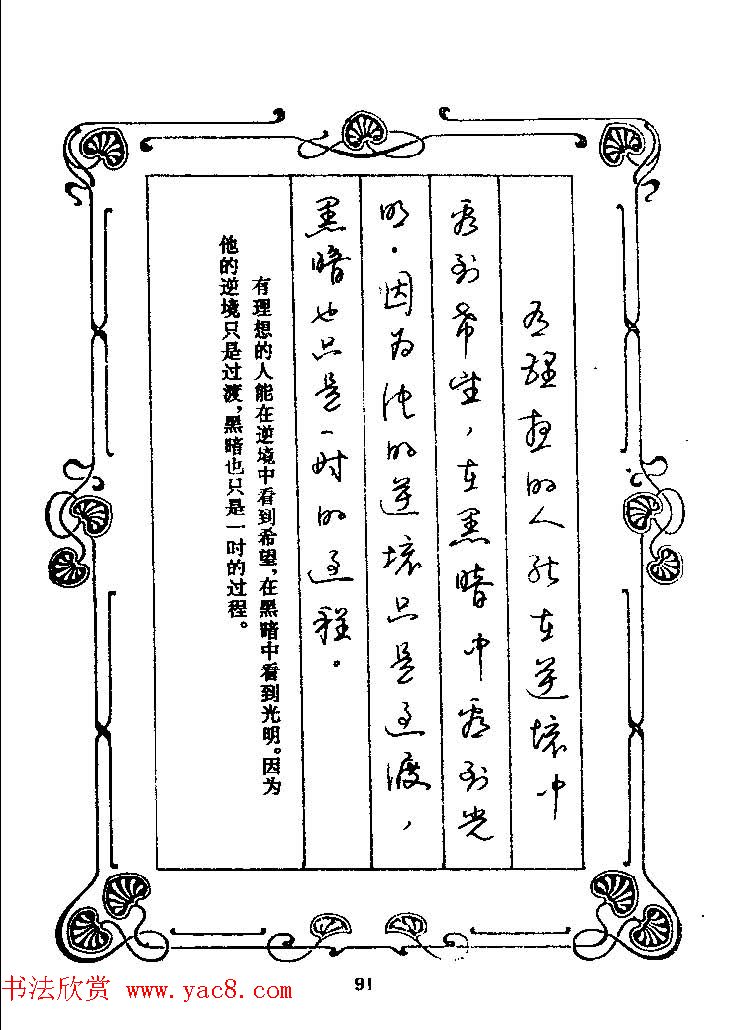 有理想的人能在逆境中
看到希望，在黑暗中看到光
明。因为他的逆境只是过渡，
黑暗也只是一时的过程。
有理想的人能在逆境中看到希望，在黑暗中看到光明。因为
他的逆境只是过渡，黑暗也只是一时的过程。
91
书法欣赏 www.yac8.com